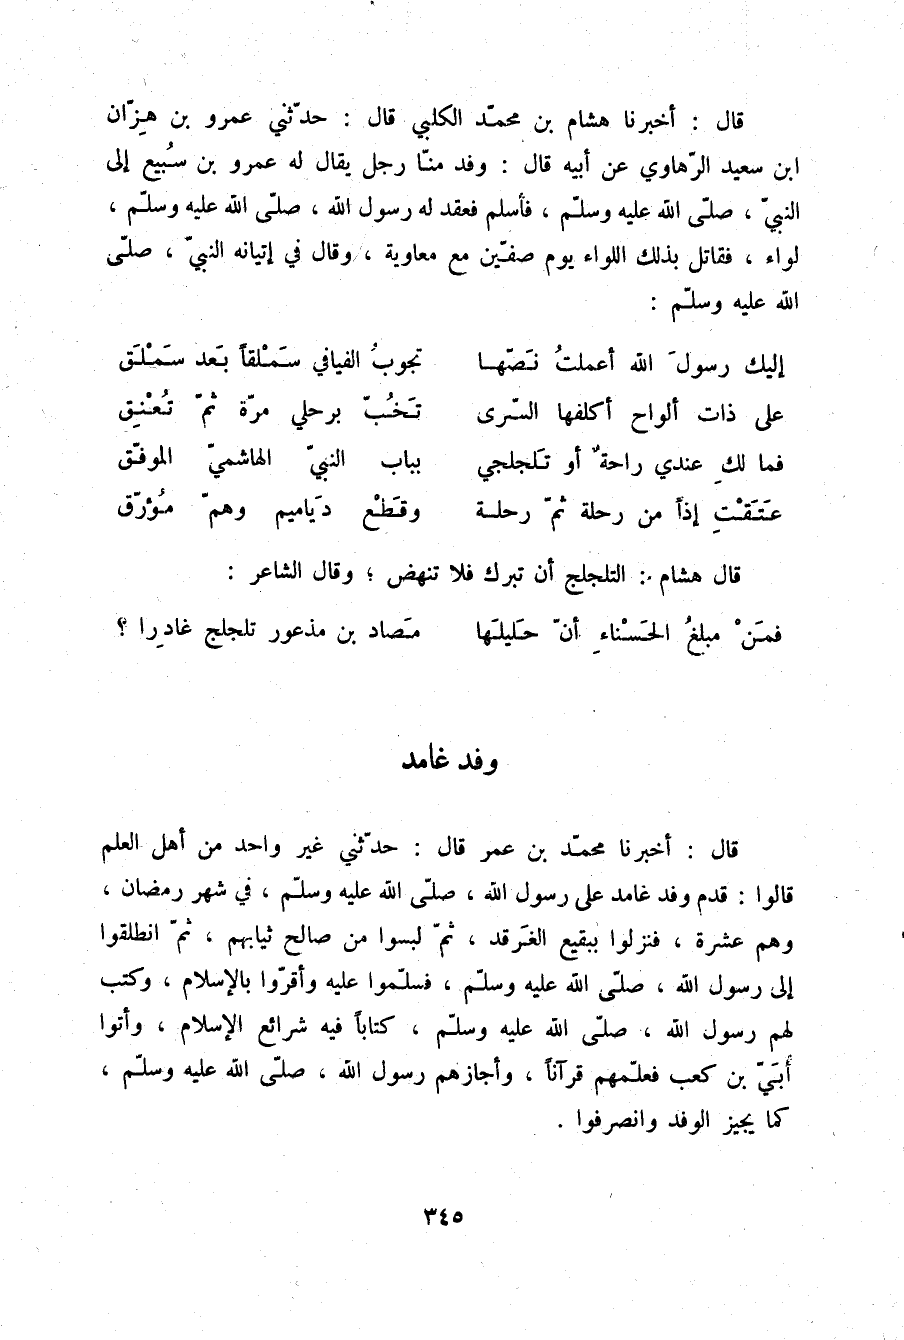 قال : أخبرنا هشام بن محمّد الكلبي قال : حدّثني عمرو بن هِزّان
ابن سعيد الرّهاوي عن أبيه قال : وفد منّا رجل يقال له عمرو بن سُبيع إلى
النبيّ ، صلّى الله عليه وسلّم ، فأسلم فعقد له رسول الله ، صلّى الله عليه وسلّم ،
لواء ، فقاتل بذلك اللواء يوم صفّين مع معاوية ، وقال في إتيانه النبيّ ، صلّى
الله عليه وسلّم :
إليك رسولَ الله أعملتُ نَصّها تجوبُ الفيافي سَمْلقاً بَعد سَمْلَق
على ذات ألواح أكلفها السّرى تَخُبّ برحلي مرّة ثمّ تُعْنِق
فما لكِ عندي راحةٌ أو تَلجلجي بباب النبيّ الهاشميّ الموفّق
عَتَقْتِ إذاً من رحلة ثمّ رحلة وقَطْع دَياميم وهمّ مُؤرّق
قال هشام : التلجلج أن تبرك فلا تنهض ؛ وقال الشاعر :
فمَنْ مبلغُ الحَسْناءِ أنّ حَليلَها مَصاد بن مذعور تلجلج غادِرا ؟
وفد غامد
قال : أخبرنا محمّد بن عمر قال : حدّثني غير واحد من أهل العلم
قالوا : قدم وفد غامد على رسول الله ، صلّى الله عليه وسلّم ، في شهر رمضان ،
وهم عشرة ، فنزلوا ببقيع الغَرقد ، ثمّ لبسوا من صالح ثيابهم ، ثمّ انطلقوا
إلى رسول الله ، صلّى الله عليه وسلّم ، فسلّموا عليه وأقرّوا بالإسلام ، وكتب
لهم رسول الله ، صلّى الله عليه وسلّم ، كتاباً فيه شرائع الإسلام ، وأتوا
أُبَيّ بن كعب فعلّمهم قرآناً ، وأجازهم رسول الله ، صلّى الله عليه وسلّم ،
كما يجيز الوفد وانصرفوا .
٣٤٥